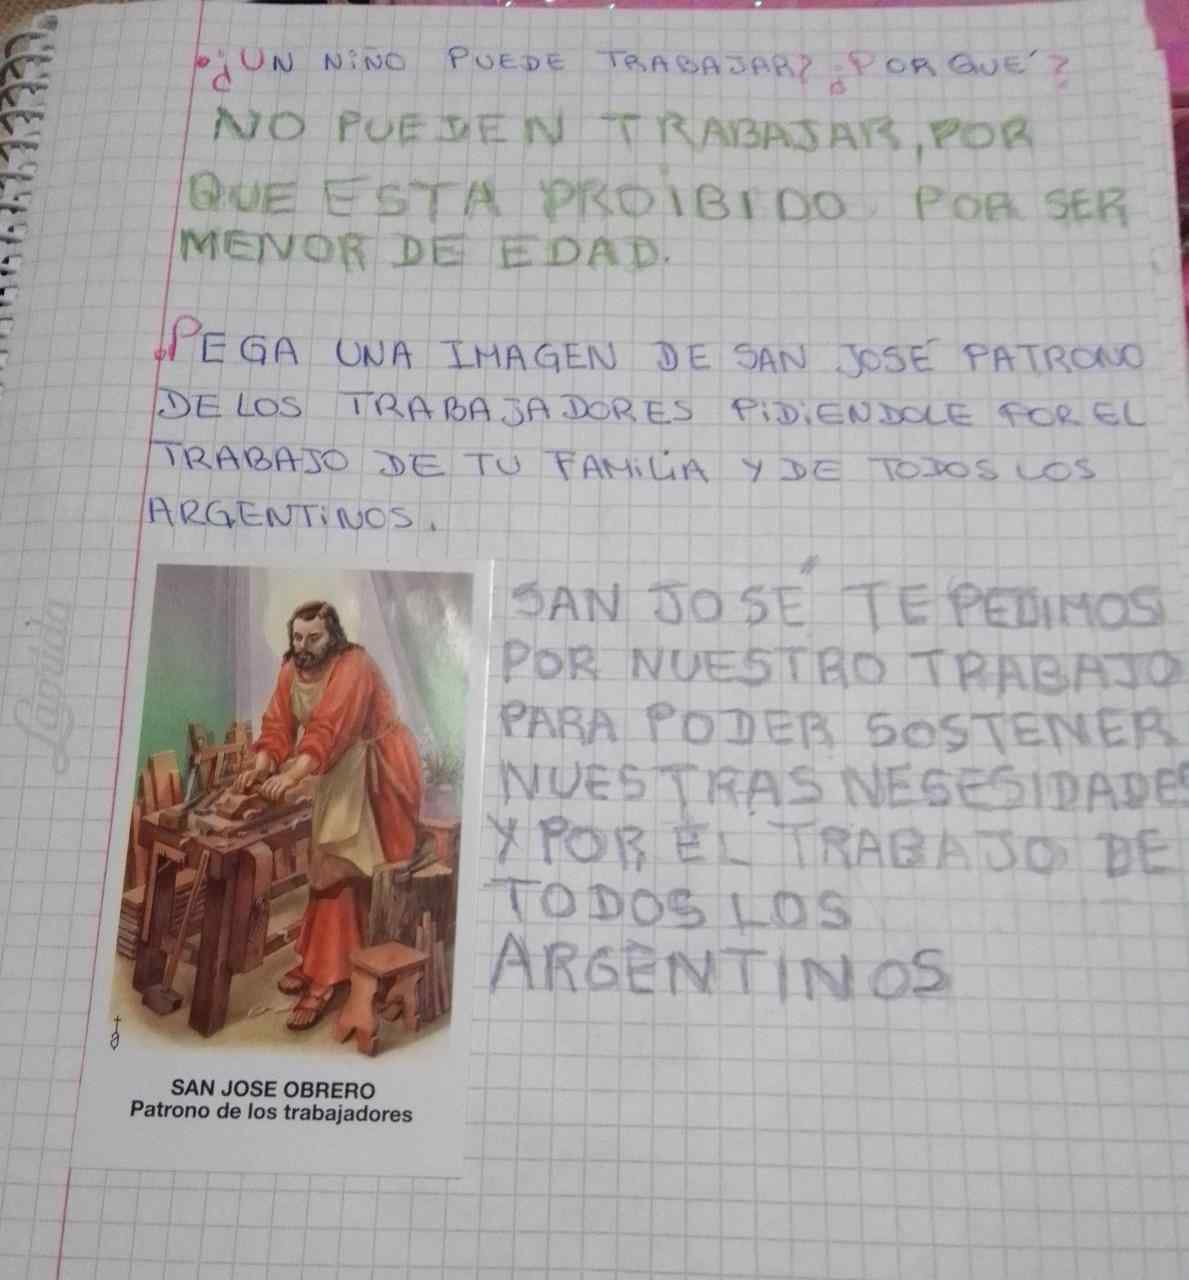 ¿UN NIÑO PUEDE TRABAJAR? ¿POR QUÉ?
NO PUEDEN TRABAJAR, POR
QUE ESTA PROIBIDO POR SER
MENOR DE EDAD.
PEGA UNA IMAGEN DE SAN JOSÉ PATRONO
DE LOS TRABAJADORES PIDIENDOLE POR EL
TRABAJO DE TU FAMILIA Y DE TODOS LOS
ARGENTINOS.
SAN JOSÉ TE PEDIMOS
POR NUESTRO TRABAJO
PARA PODER SOSTENER
NUESTRAS NESESIDADES
Y POR EL TRABAJO DE
TODOS LOS
ARGENTINOS
SAN JOSE OBRERO
Patrono de los trabajadores
Laprida